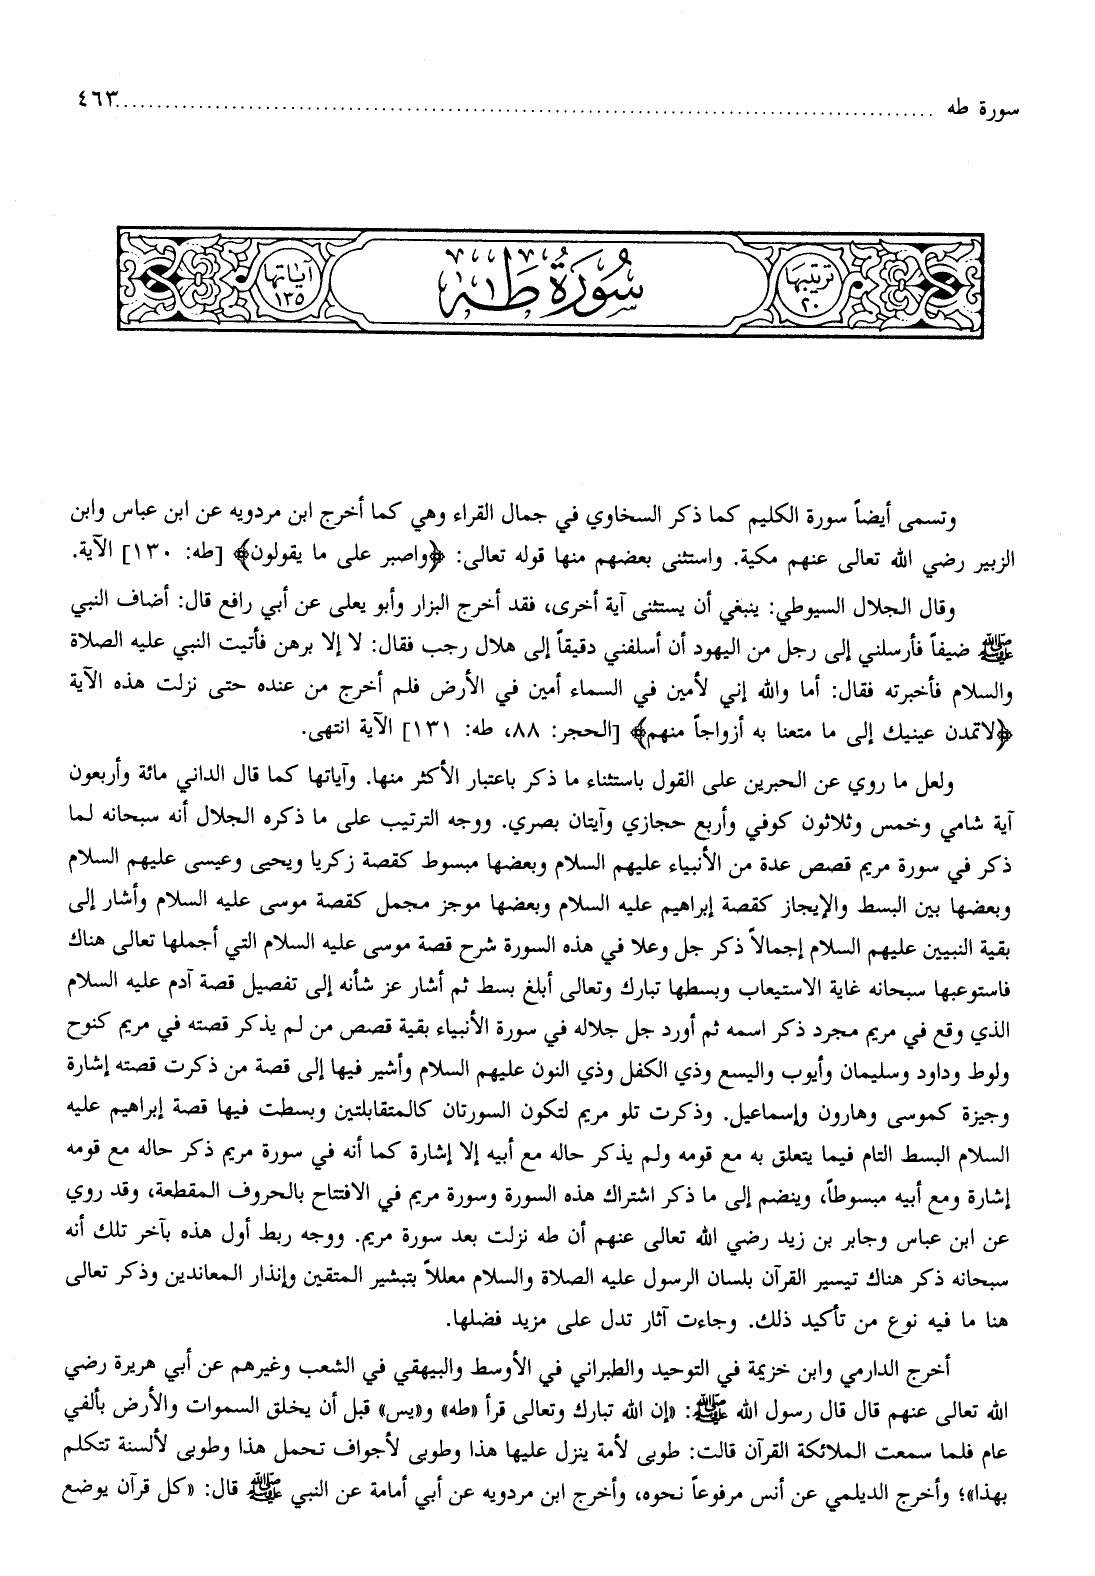 سورة طه ........................................................................................ ٤٦٣
ترتيبها ٢٠
سُورَةُ طٰه
آياتها ١٣٥
وتسمى أيضاً سورة الكليم كما ذكر السخاوي في جمال القراء وهي كما أخرج ابن مردويه عن ابن عباس وابن
الزبير رضي الله تعالى عنهم مكية. واستثنى بعضهم منها قوله تعالى: ﴿واصبر على ما يقولون﴾ [طه: ١٣٠] الآية.
وقال الجلال السيوطي: ينبغي أن يستثنى آية أخرى، فقد أخرج البزار وأبو يعلى عن أبي رافع قال: أضاف النبي
ﷺ ضيفاً فأرسلني إلى رجل من اليهود أن أسلفني دقيقاً إلى هلال رجب فقال: لا إلا برهن فأتيت النبي عليه الصلاة
والسلام فأخبرته فقال: أما والله إني لأمين في السماء أمين في الأرض فلم أخرج من عنده حتى نزلت هذه الآية
﴿لاتمدن عينيك إلى ما متعنا به أزواجاً منهم﴾ [الحجر: ٨٨، طه: ١٣١] الآية انتهى.
ولعل ما روي عن الحبرين على القول باستثناء ما ذكر باعتبار الأكثر منها. وآياتها كما قال الداني مائة وأربعون
آية شامي وخمس وثلاثون كوفي وأربع حجازي وآيتان بصري. ووجه الترتيب على ما ذكره الجلال أنه سبحانه لما
ذكر في سورة مريم قصص عدة من الأنبياء عليهم السلام وبعضها مبسوط كقصة زكريا ويحيى وعيسى عليهم السلام
وبعضها بين البسط والإيجاز كقصة إبراهيم عليه السلام وبعضها موجز مجمل كقصة موسى عليه السلام وأشار إلى
بقية النبيين عليهم السلام إجمالاً ذكر جل وعلا في هذه السورة شرح قصة موسى عليه السلام التي أجملها تعالى هناك
فاستوعبها سبحانه غاية الاستيعاب وبسطها تبارك وتعالى أبلغ بسط ثم أشار عز شأنه إلى تفصيل قصة آدم عليه السلام
الذي وقع في مريم مجرد ذكر اسمه ثم أورد جل جلاله في سورة الأنبياء بقية قصص من لم يذكر قصته في مريم كنوح
ولوط وداود وسليمان وأيوب واليسع وذي الكفل وذي النون عليهم السلام وأشير فيها إلى قصة من ذكرت قصته إشارة
وجيزة كموسى وهارون وإسماعيل. وذكرت تلو مريم لتكون السورتان كالمتقابلتين وبسطت فيها قصة إبراهيم عليه
السلام البسط التام فيما يتعلق به مع قومه ولم يذكر حاله مع أبيه إلا إشارة كما أنه في سورة مريم ذكر حاله مع قومه
إشارة ومع أبيه مبسوطاً، وينضم إلى ما ذكر اشتراك هذه السورة وسورة مريم في الافتتاح بالحروف المقطعة، وقد روي
عن ابن عباس وجابر بن زيد رضي الله تعالى عنهم أن طه نزلت بعد سورة مريم. ووجه ربط أول هذه بآخر تلك أنه
سبحانه ذكر هناك تيسير القرآن بلسان الرسول عليه الصلاة والسلام معللاً بتبشير المتقين وإنذار المعاندين وذكر تعالى
هنا ما فيه نوع من تأكيد ذلك. وجاءت آثار تدل على مزيد فضلها.
أخرج الدارمي وابن خزيمة في التوحيد والطبراني في الأوسط والبيهقي في الشعب وغيرهم عن أبي هريرة رضي
الله تعالى عنهم قال قال رسول الله ﷺ: «إن الله تبارك وتعالى قرأ «طه» و«يس» قبل أن يخلق السموات والأرض بألفي
عام فلما سمعت الملائكة القرآن قالت: طوبى لأمة ينزل عليها هذا وطوبى لأجواف تحمل هذا وطوبى لألسنة تتكلم
بهذا»؛ وأخرج الديلمي عن أنس مرفوعاً نحوه، وأخرج ابن مردويه عن أبي أمامة عن النبي ﷺ قال: «كل قرآن يوضع